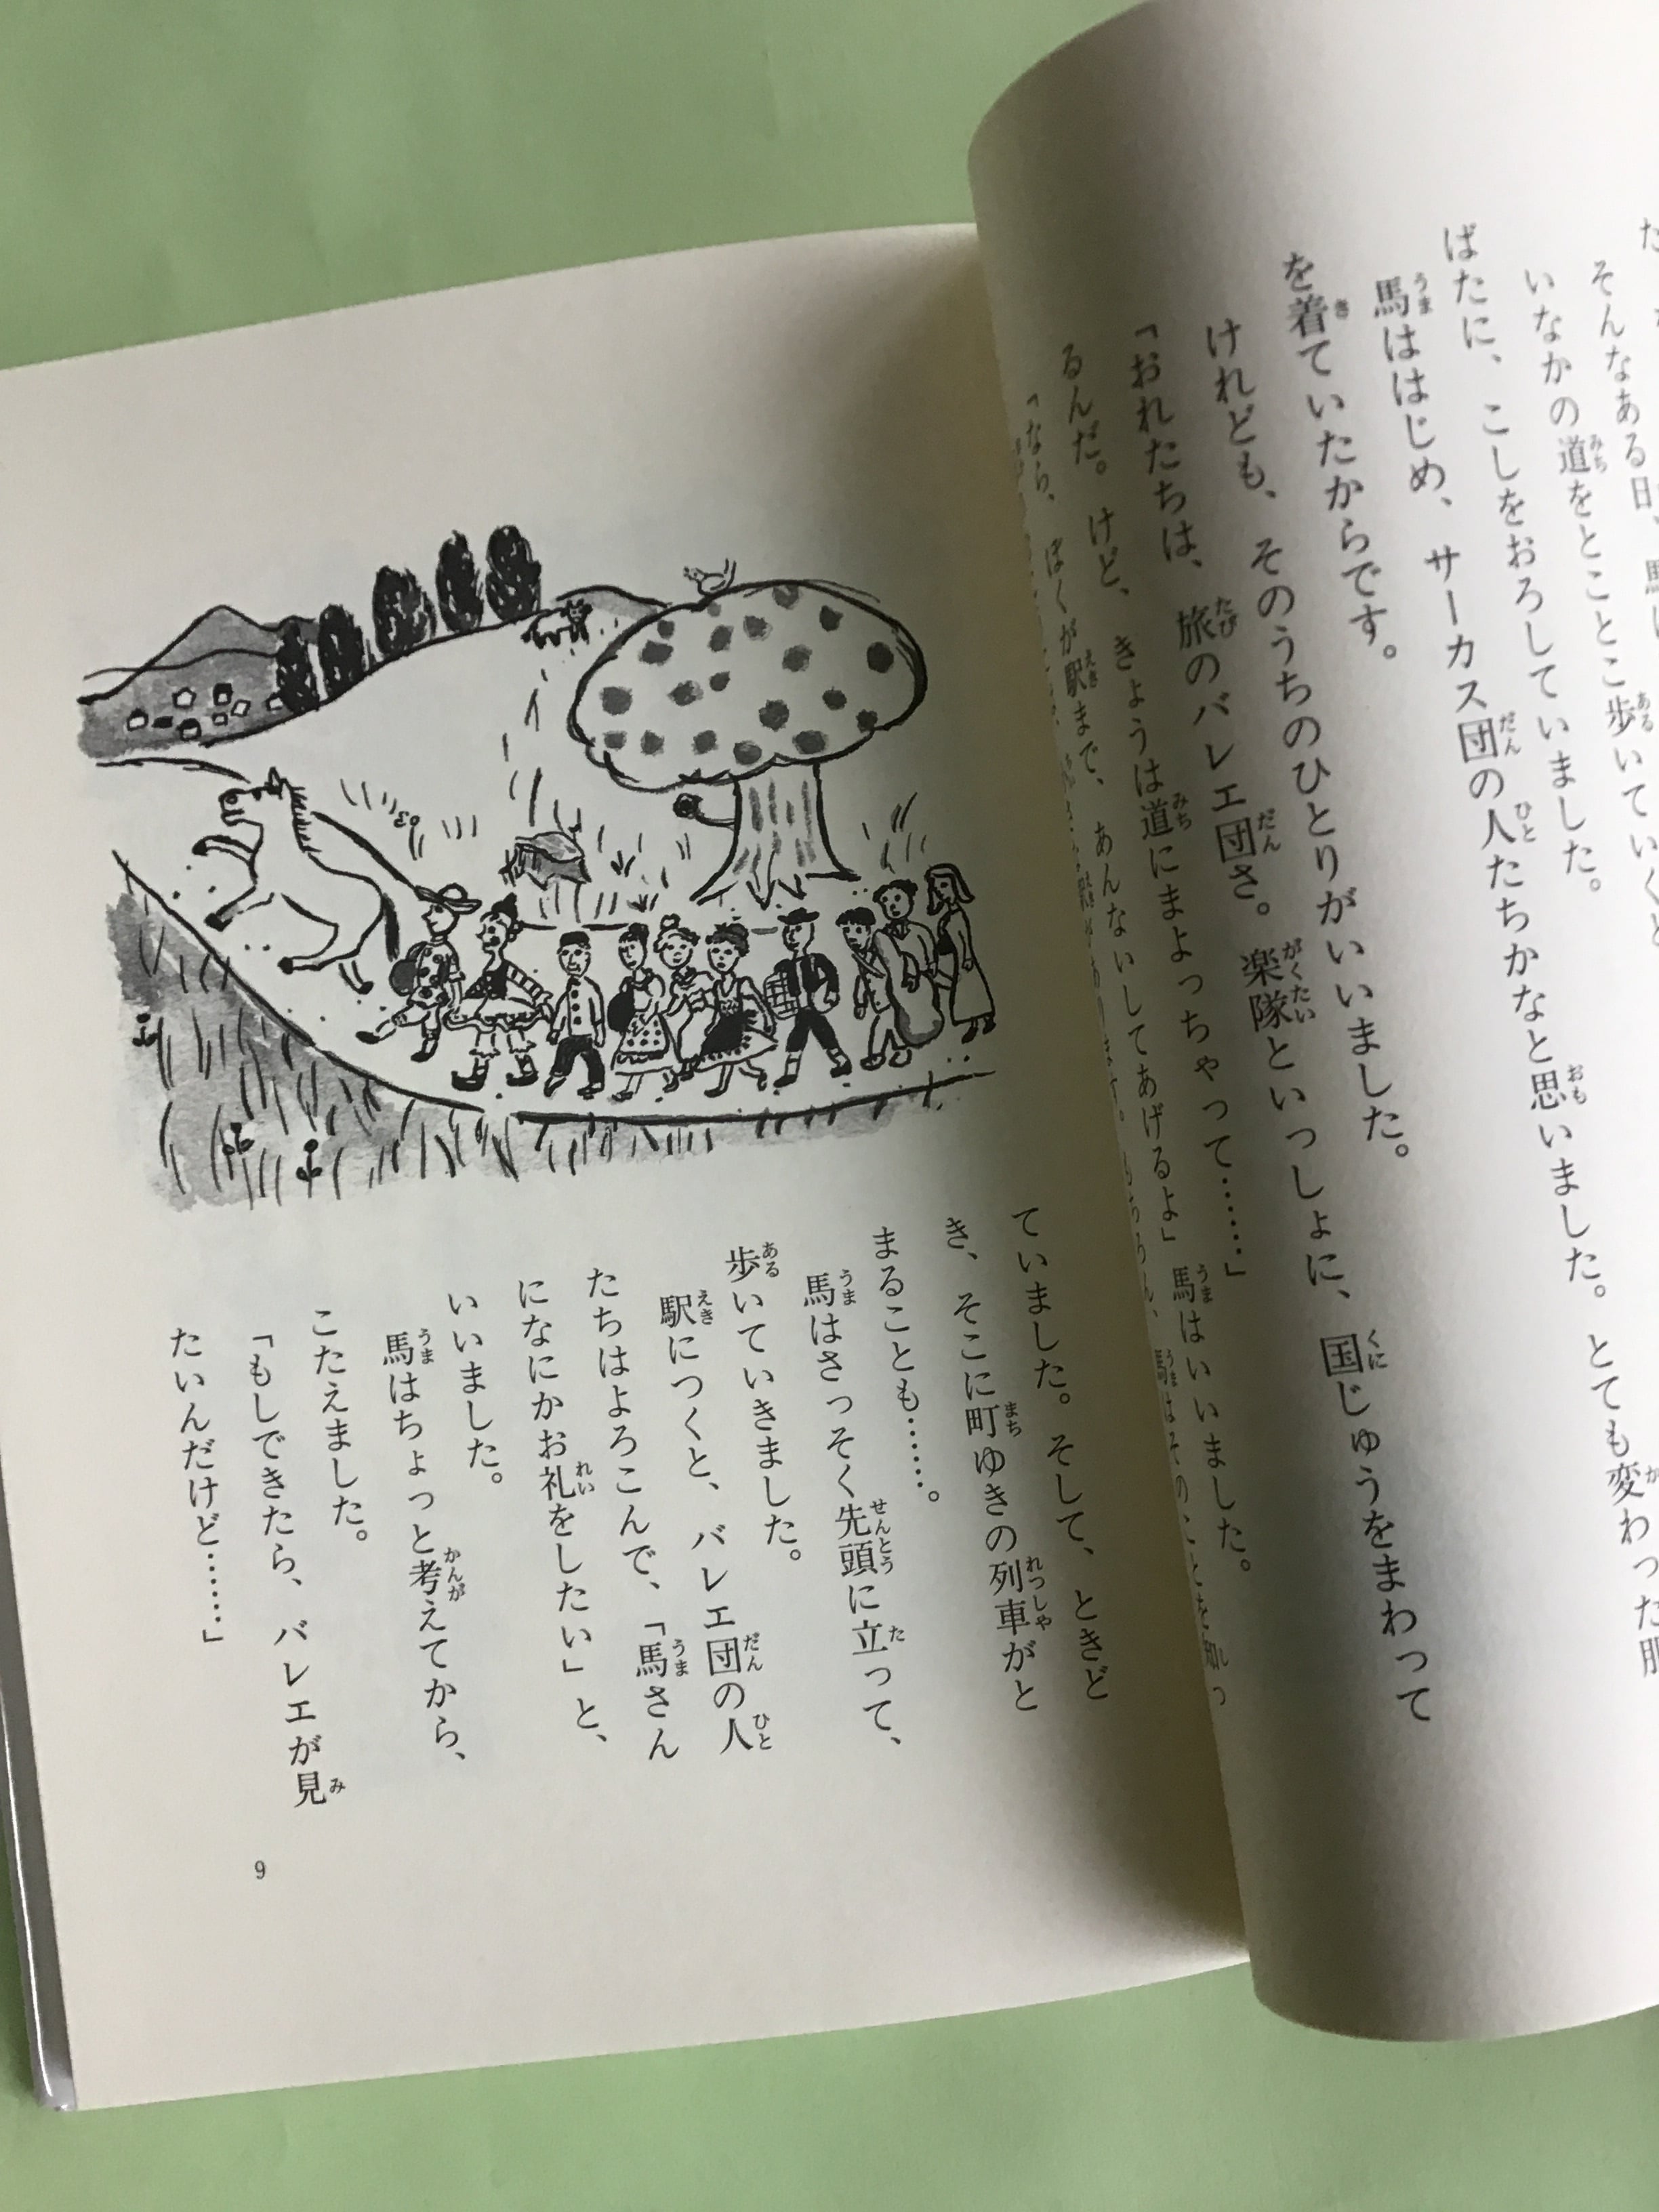 そんなある日、馬は
いなかの道をとことこ歩いていくと
ばたに、こしをおろしていました。
馬ははじめ、サーカス団の人たちかなと思いました。とても変わった服
を着ていたからです。
けれども、そのうちのひとりがいいました。
「おれたちは、旅のバレエ団さ。楽隊といっしょに、国じゅうをまわって
るんだ。けど、きょうは道にまよっちゃって……」
「なら、ぼくが駅まで、あんないしてあげるよ」馬はいいました。
ていました。そして、ときど
き、そこに町ゆきの列車がと
まることも……。
馬はさっそく先頭に立って、
歩いていきました。
駅につくと、バレエ団の人
たちはよろこんで、「馬さん
になにかお礼をしたい」と、
いいました。
馬はちょっと考えてから、
こたえました。
「もしできたら、バレエが見
たいんだけど……」
9